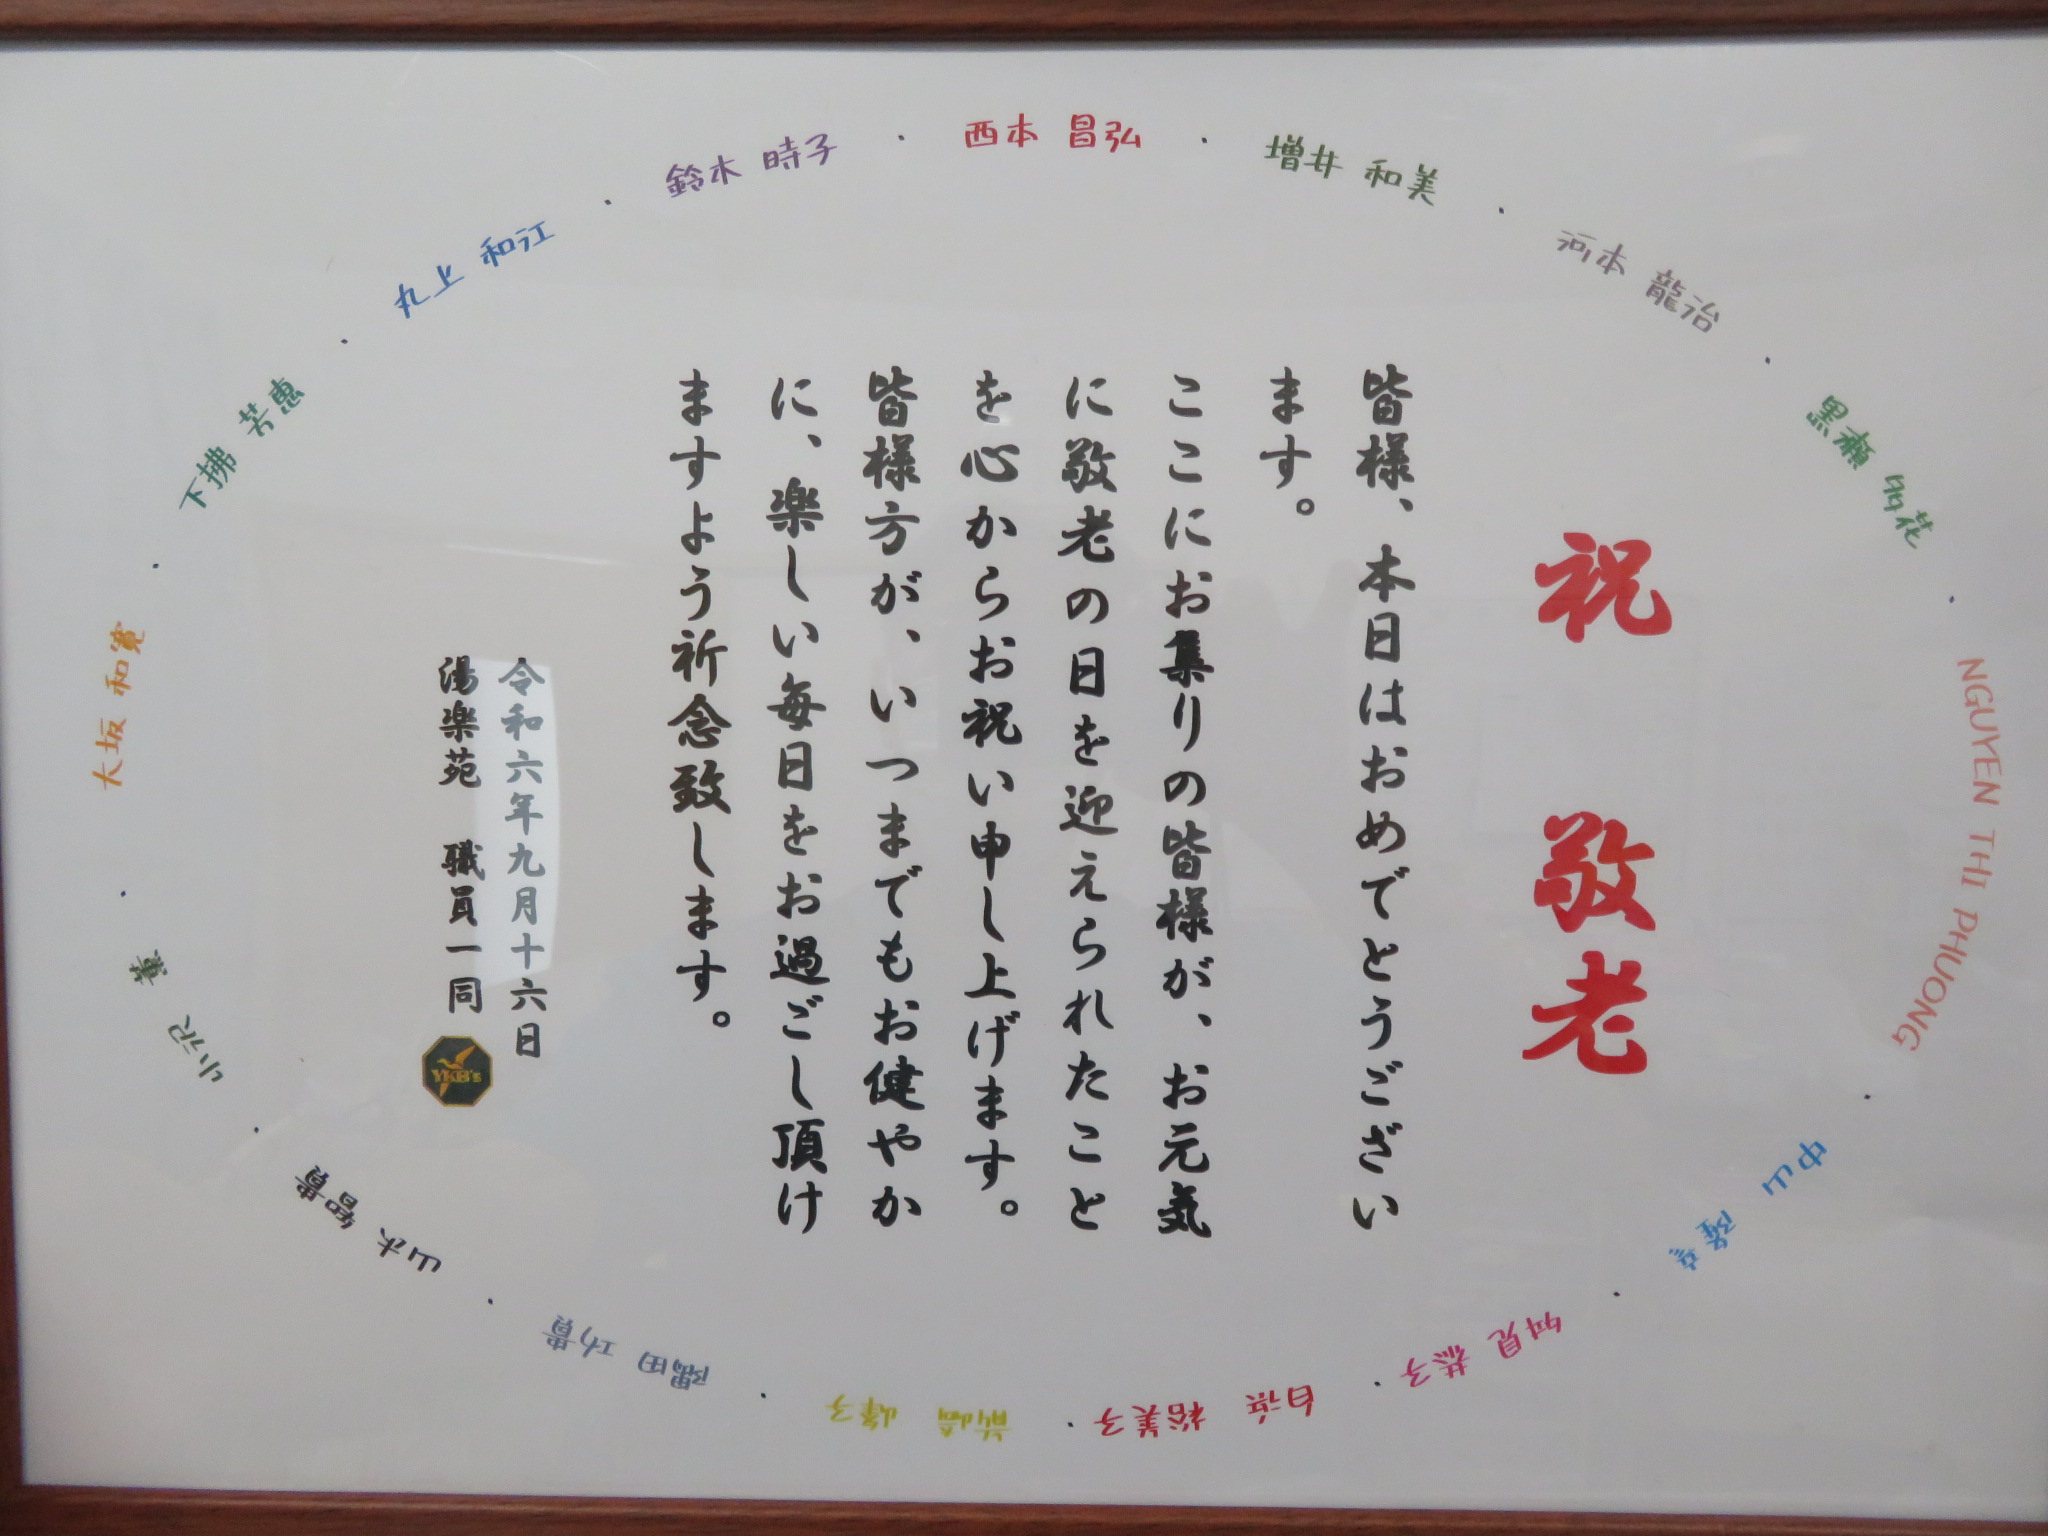 祝　敬老
皆様、本日はおめでとうござい
ます。
ここにお集りの皆様が、お元気
に敬老の日を迎えられたこと
を心からお祝い申し上げます。
皆様方が、いつまでもお健やか
に、楽しい毎日をお過ごし頂け
ますよう祈念致します。
令和六年九月十六日
湯楽苑　職員一同
YKB's
西本 昌弘
増井 和美
河本 龍治
黒瀬
NGUYEN THI PHUONG
中山 隆
舛見 恭子
白涼 裕美子
前崎 峰子
隅田 功貴
山永 智貴
小沢 薫
大坂 和寛
下拂 芳恵
丸上 和江
鈴木 時子